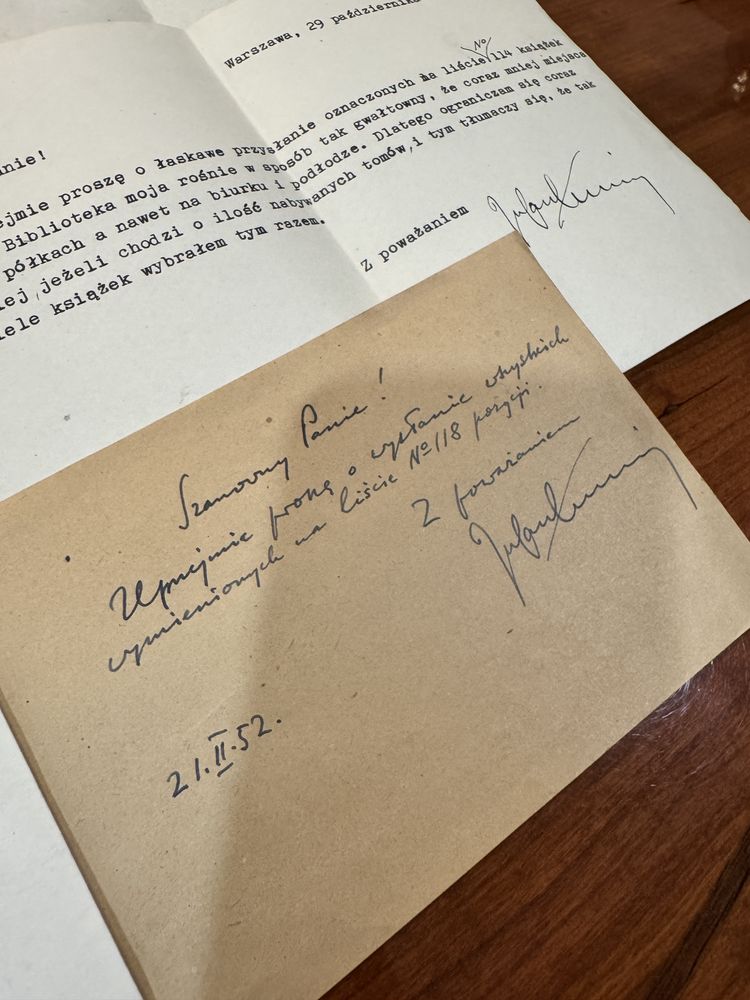 Warszawa, 29 października
nie!
ejmie proszę o łaskawe przysłanie oznaczonych na liście No 114 książek
Biblioteka moja rośnie w sposób tak gwałtowny, że coraz mniej miejsca
półkach a nawet na biurku i podłodze. Dlatego ograniczam się coraz
iej, jeżeli chodzi o ilość nabywanych tomów, i tym tłumaczy się, że tak
iele książek wybrałem tym razem.
Z poważaniem
Szanowny Panie!
Uprzejmie proszę o wysłanie wszystkich
wymienionych na liście No 118 pozycji.
Z poważaniem
21.II.52.